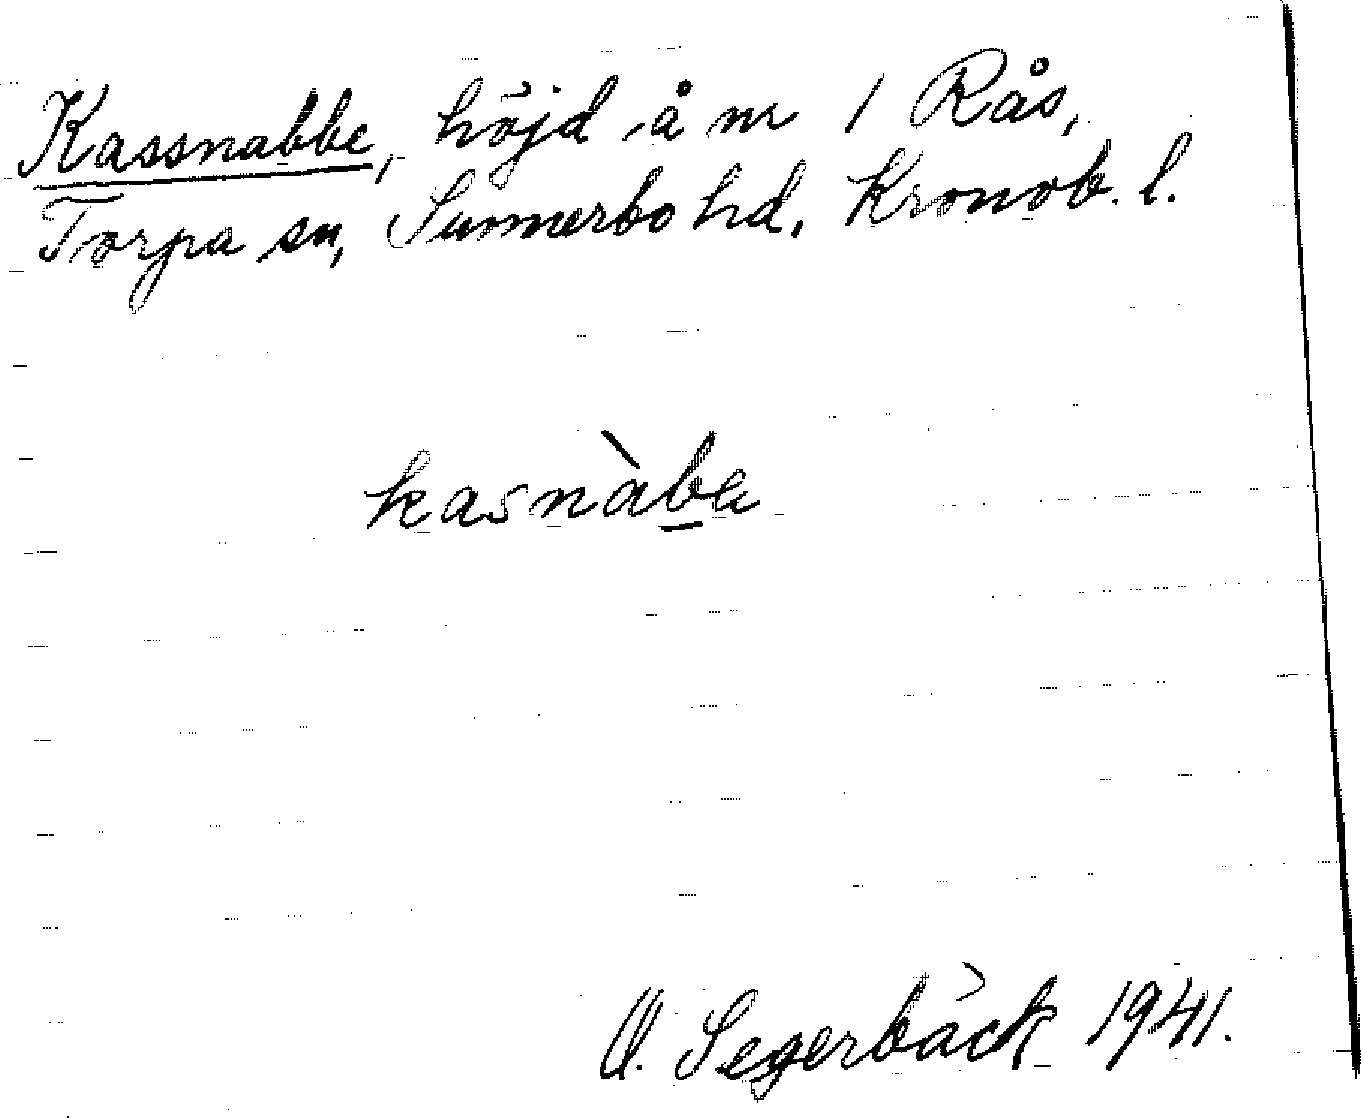 Kassnabbe, höjd å nr 1 Rås,
Torpa sn, Sunnerbo hd, Kronob. l.
kasnàba
O. Segerbäck 1941.